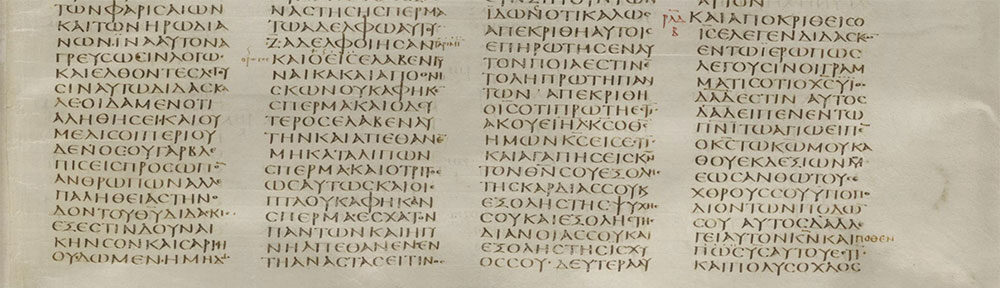 ΤΩΝΦΑΡΙϹΑΙΩΝ
ΚΑΙΤΩΝΗΡΩΔΙΑ
ΝΩΝΙΝΑΑΥΤΟΝΑ
ΓΡΕΥϹΩϹΙΝΛΟΓΩ
ΚΑΙΕΛΘΟΝΤΕϹΛΕΓΟΥ
ϹΙΝΑΥΤΩΔΙΔΑϹΚΑ
ΛΕΟΙΔΑΜΕΝΟΤΙ
ΑΛΗΘΗϹΕΙΚΑΙΟΥ
ΜΕΛΙϹΟΙΠΕΡΙΟΥ
ΔΕΝΟϹΟΥΓΑΡΒΛΕ
ΠΙϹΕΙϹΠΡΟϹΩΠΟ
ΑΝΘΡΩΠΩΝΑΛΛΕ
ΠΑΛΗΘΕΙΑϹΤΗΝΟ
ΔΟΝΤΟΥΘΥΔΙΔΑϹΚΙ
ΕΞΕϹΤΙΝΔΟΥΝΑΙ
ΚΗΝϹΟΝΚΑΙϹΑΡΙΗ
ΟΥΔΩΜΕΝΗΜΗΔ
ΝΑϹΤΗϹΗϹΠΕΡΜΑ
ΤΩΑΔΕΛΦΩΑΥΤΟΥ
Ζ·ΑΔΕΛΦΟΙΗϹΑΝ
ΚΑΙΟΕΙϹΕΛΑΒΕΝΓΥ
ΝΑΙΚΑΚΑΙΑΠΟΘΝΗ
ϹΚΩΝΟΥΚΑΦΗΚΕ
ϹΠΕΡΜΑΚΑΙΟΔΕΥ
ΤΕΡΟϹΕΛΑΒΕΝΑΥ
ΤΗΝΚΑΙΑΠΕΘΑΝΕ
ΜΗΚΑΤΑΛΙΠΩΝ
ϹΠΕΡΜΑΚΑΙΟΤΡΙΤΟ
ΩϹΑΥΤΩϹΚΑΙΟΙΕ
ΠΤΑΟΥΚΑΦΗΚΑΝ
ϹΠΕΡΜΑΕϹΧΑΤΟΝ
ΠΑΝΤΩΝΚΑΙΗΓΥ
ΝΗΑΠΕΘΑΝΕΝΕΝ
ΤΗΑΝΑϹΤΑϹΕΙΤΙΝΟ
ΙΔΩΝΟΤΙΚΑΛΩϹ
ΑΠΕΚΡΙΘΗΑΥΤΟΙϹ
ΕΠΗΡΩΤΗϹΕΝΑΥ
ΤΟΝΠΟΙΑΕϹΤΙΝΕ
ΤΟΛΗΠΡΩΤΗΠΑΝ
ΤΩΝ·ΑΠΕΚΡΙΘΗ
ΟΙϹΟΤΙΠΡΩΤΗΕϹΤΙ
ΑΚΟΥΕΙΗΛΚϹΟΘϹ
ΗΜΩΝΚϹΕΙϹΕϹΤΙ
ΚΑΙΑΓΑΠΗϹΕΙϹΚΝ
ΤΟΝΘΝϹΟΥΕΞΟΛΗϹ
ΤΗϹΚΑΡΔΙΑϹϹΟΥΚΑΙ
ΕΞΟΛΗϹΤΗϹΨΥΧΗϹ
ϹΟΥΚΑΙΕΞΟΛΗϹΤΗϹ
ΔΙΑΝΟΙΑϹϹΟΥΚΑΙ
ΕΞΟΛΗϹΤΗϹΙϹΧΥ
ΟϹϹΟΥ·ΔΕΥΤΕΡΑΑΥ
ΚΑΙΑΠΟΚΡΙΘΕΙϹΟ
ΙϹΕΛΕΓΕΝΔΙΔΑϹΚΩ
ΕΝΤΩΙΕΡΩΠΩϹ
ΛΕΓΟΥϹΙΝΟΙΓΡΑΜ
ΜΑΤΙϹΟΤΙΟΧϹΥΙΟϹ
ΔΑΔΕϹΤΙΝ ΑΥΤΟϹ
ΔΑΔΕΙΠΕΝΕΝΤΩ
ΠΝΙΤΩΑΓΙΩΕΙΠΕ
ΟΚϹΤΩΚΩΜΟΥΚΑ
ΘΟΥΕΚΔΕΞΙΩΝΜΟΥ
ΕΩϹΑΝΘΩΤΟΥϹΕ
ΧΘΡΟΥϹϹΟΥΥΠΟΠΟ
ΔΙΟΝΤΩΝΠΟΔΩ
ϹΟΥ ΑΥΤΟϹΔΑΔΛΕ
ΓΕΙΑΥΤΟΝΚΝΚΑΙΠΟΘΕΝ
ΠΩϹΥϹΑΥΤΟΥΕϹΤΙ
ΚΑΙΠΟΛΥϹΟΧΛΟϹ